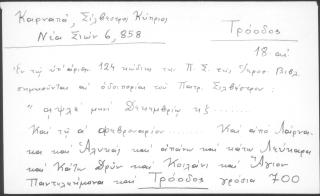 Καρναπᾶ, Σίλβεστρος Κύπριος
Τρόοδος
Νέα Σιών 6, 858
18. αἰ
Ἐν τῷ ὑπ' ἀριθμ. 124 κώδικι τῆς Π. Σ. τῆς Βιβλ.
σημειοῦνται αἱ ὁδοιπορίαι τοῦ Πατρ. Σιλβέστρου:
" αψλε μηνὶ Δεκεμβρίῳ
Καὶ τῇ α' φεβρουαρίου ..... Καὶ ἀπὸ Λάρνα-
κα καὶ Ἁλυκαὶς καὶ ἀπάνω καὶ κάτω Λεύκαρα
καὶ Κάτω Δρὺν καὶ Κοιλάνι καὶ Ἅγιον
Παντελεήμονα καὶ Τρόοδος γρόσια 700